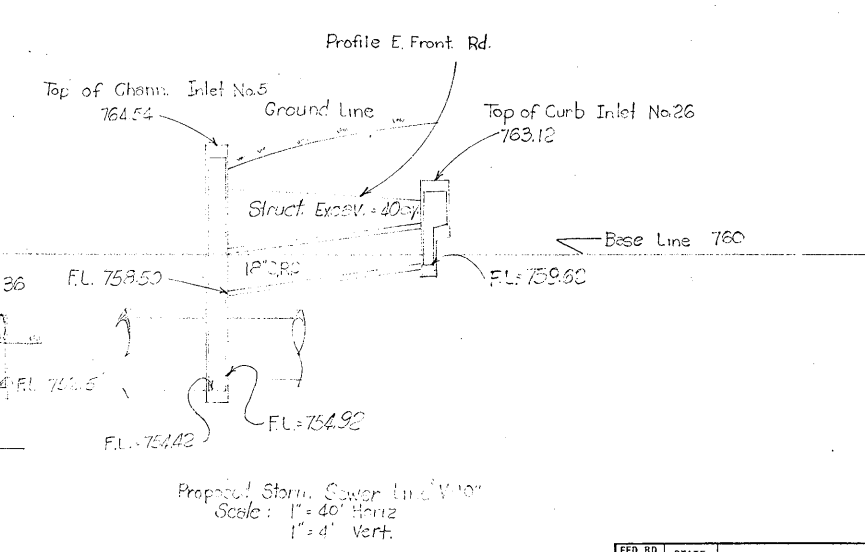 Profile E. Front. Rd.
Top of Chann. Inlet No.5
764.54
Ground Line
Top of Curb Inlet No.26
763.12
Struct. Excav. = 40cy.
Base Line 760
36
F.L. 758.50
18"
F.L. = 759.60
F.L.
F.L. = 754.92
F.L. = 754.42
Proposed Storm Sewer Line
Scale: 1" = 40' Horiz
1" = 4' Vert.
FED. RD.